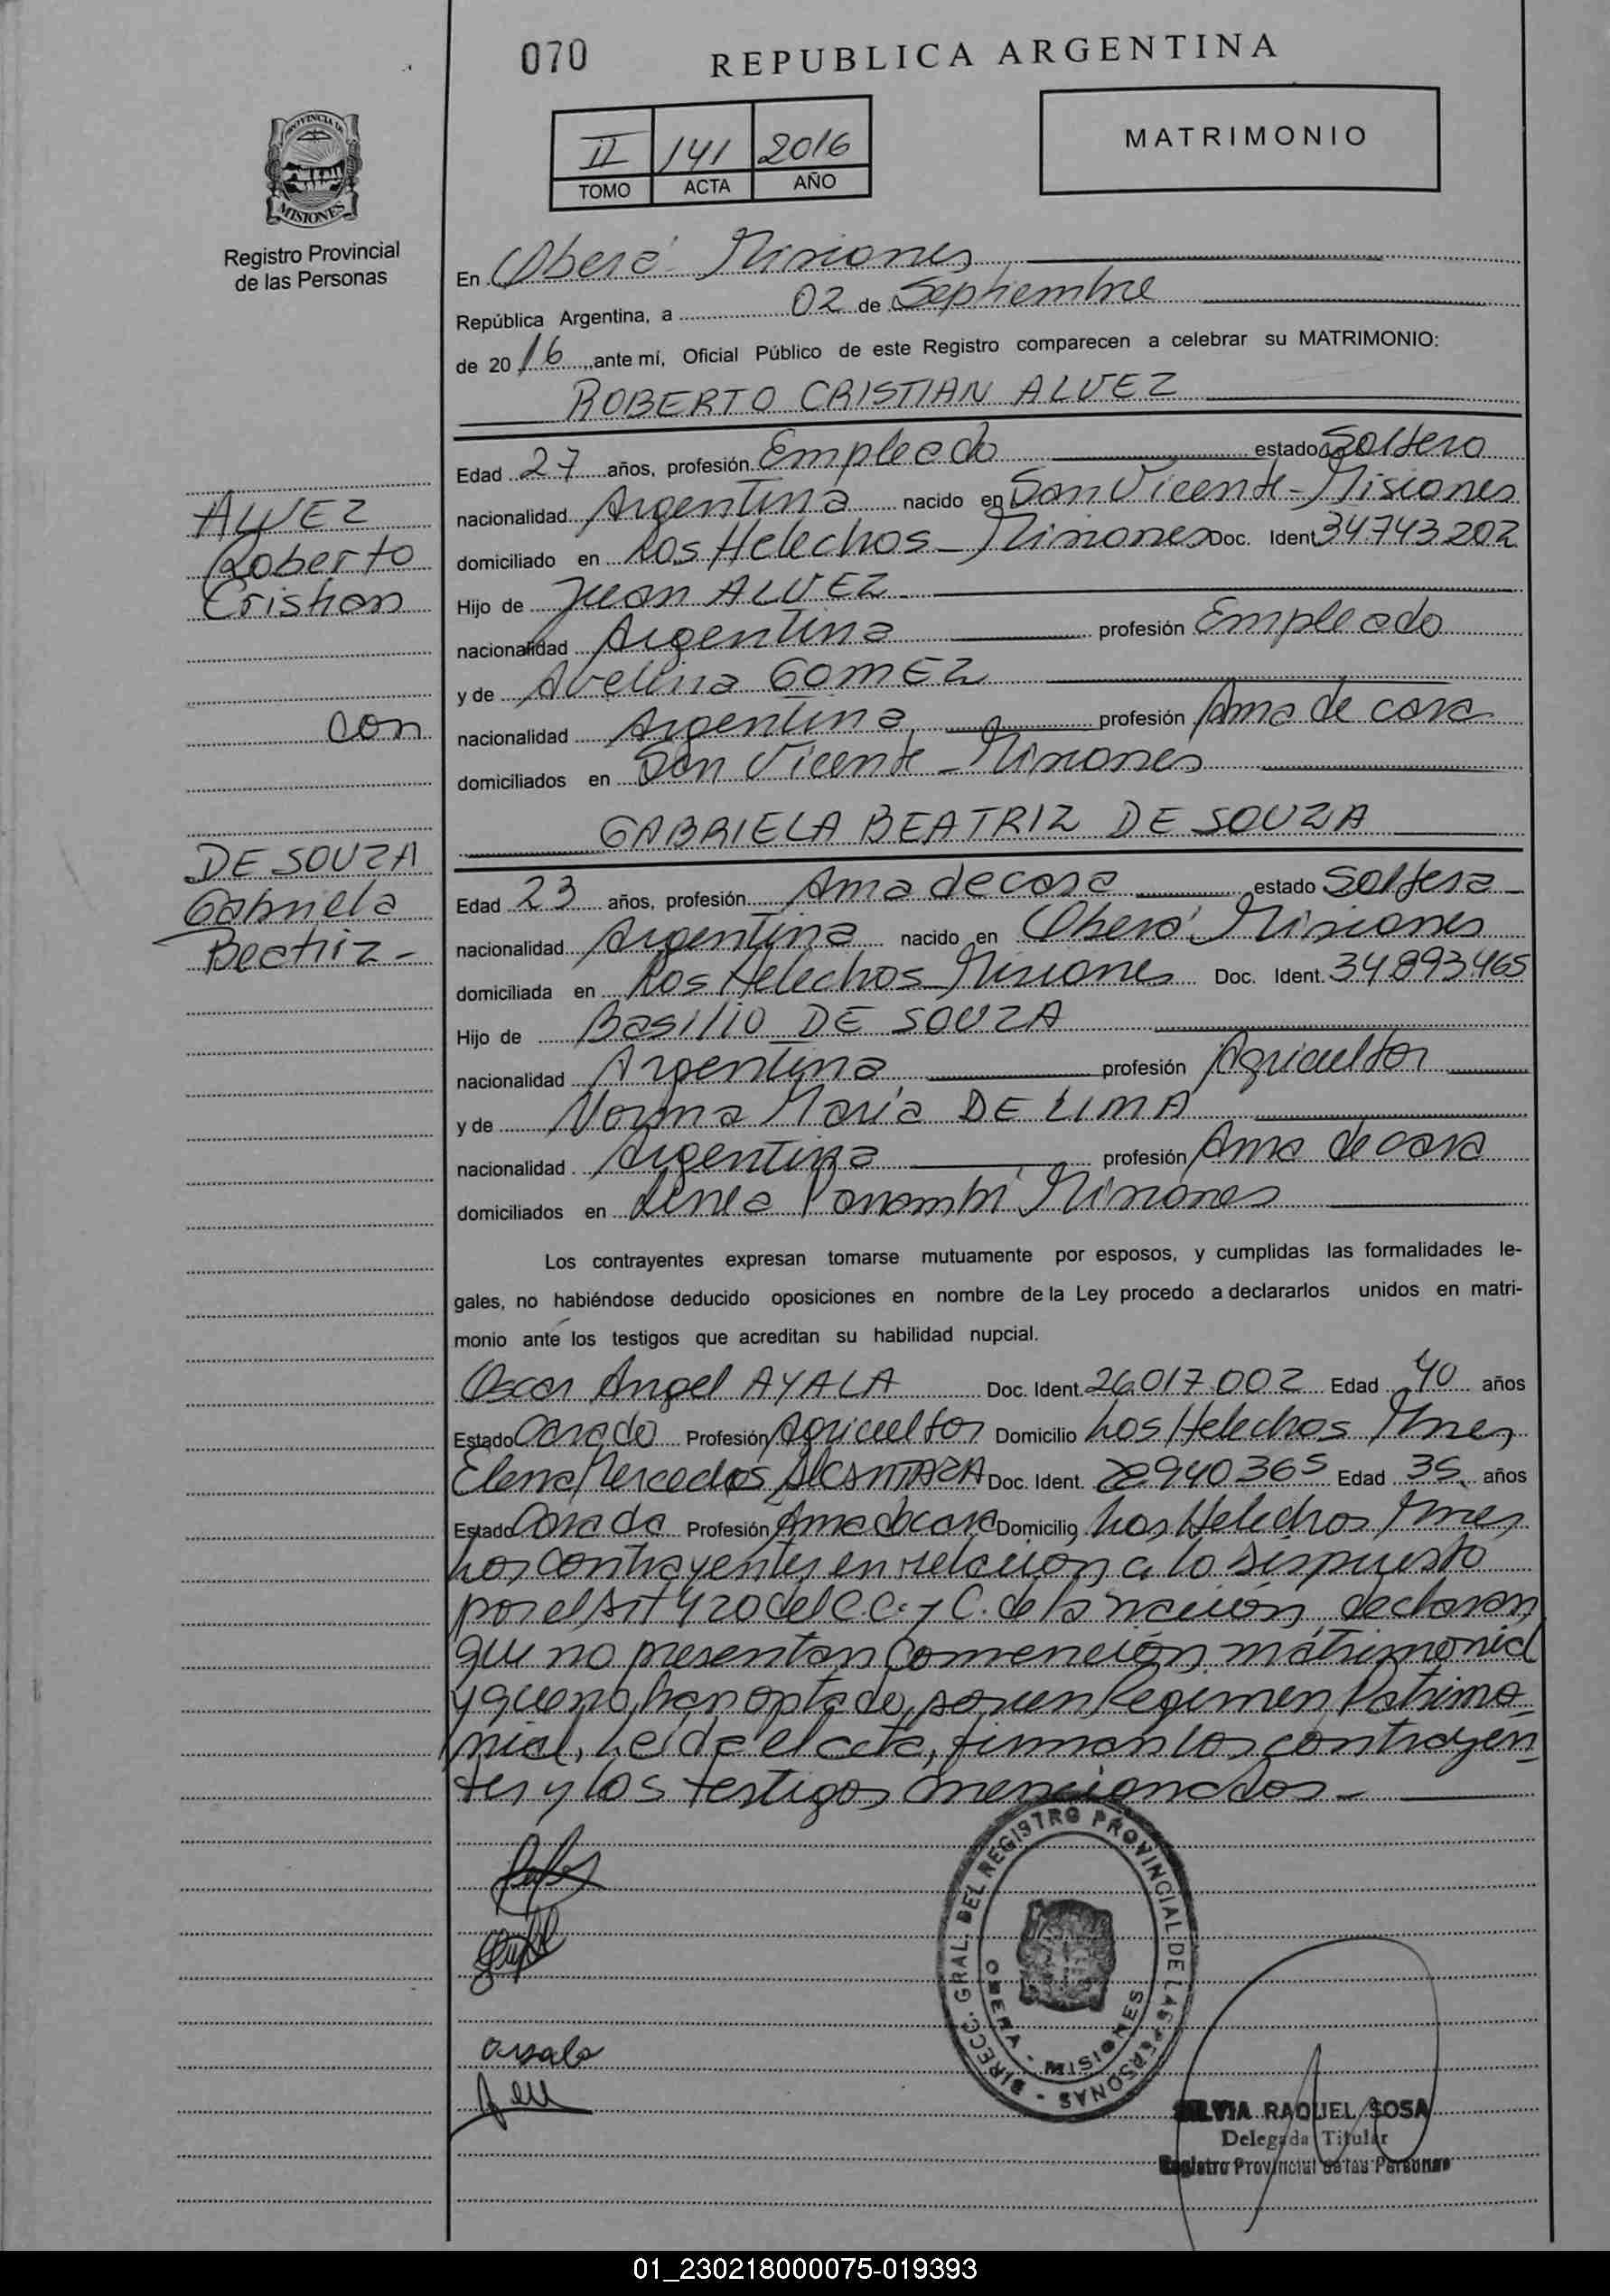 070
REPUBLICA ARGENTINA
PROVINCIA DE
MISIONES
Registro Provincial
de las Personas
II 141 2016
TOMO ACTA AÑO
MATRIMONIO
En Oberá Misiones
República Argentina, a 02 de Septiembre
de 2016, ante mí, Oficial Público de este Registro comparecen a celebrar su MATRIMONIO:
ROBERTO CRISTIAN ALVEZ
ALVEZ
Roberto
Cristian
con
DE SOUZA
Gabriela
Beatriz -
Edad 27 años, profesión Empleado estado Soltero
nacionalidad Argentina nacido en San Vicente - Misiones
domiciliado en Los Helechos - Misiones Doc. Ident 34743202
Hijo de Juan ALVEZ
nacionalidad Argentina profesión Empleado
y de Avelina GOMEZ
nacionalidad Argentina profesión Ama de casa
domiciliados en San Vicente - Misiones
GABRIELA BEATRIZ DE SOUZA
Edad 23 años, profesión Ama de casa estado Soltera
nacionalidad Argentina nacido en Oberá Misiones
domiciliada en Los Helechos Misiones Doc. Ident. 34.893.465
Hijo de Basilio DE SOUZA
nacionalidad Argentina profesión Agricultor
y de Norma María DE LIMA
nacionalidad Argentina profesión Ama de casa
domiciliados en Línea Panambí Misiones
Los contrayentes expresan tomarse mutuamente por esposos, y cumplidas las formalidades le-
gales, no habiéndose deducido oposiciones en nombre de la Ley procedo a declararlos unidos en matri-
monio ante los testigos que acreditan su habilidad nupcial.
Oscar Angel AYALA Doc. Ident. 26.017.002 Edad 40 años
Estado Casado Profesión Agricultor Domicilio Los Helechos Mnes
Elena Mercedes ALCANTARA Doc. Ident. 28940365 Edad 35 años
Estado Casada Profesión Ama de casa Domicilio Los Helechos Mnes
Los contrayentes en relación a lo dispuesto
por el Art 420 del C.C. y C. de la nación, declaran
que no presentan Convención matrimonial
y que no han optado, por un Régimen Patrimo-
nial, Leída el acta, firman los contrayen-
tes y los testigos mencionados -
DIRECC. GRAL. DEL REGISTRO PROVINCIAL DE LAS PERSONAS -
OBERA - MISIONES
ayala
SILVIA RAQUEL SOSA
Delegada Titular
Registro Provincial de las Personas
01_230218000075-019393